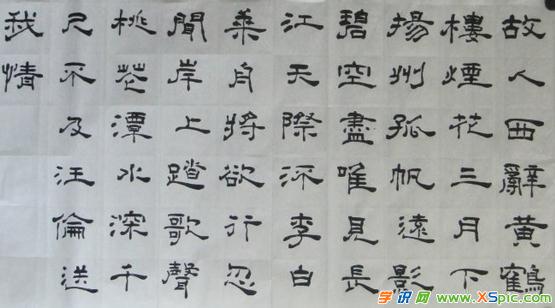 故人西辭黃鶴
樓煙花三月下
揚州孤帆遠影
碧空盡唯見長
江天際流李白
乘舟將欲行忽
聞岸上踏歌聲
桃花潭水深千
尺不及汪倫送
我情
学识网 www.XSpic.com